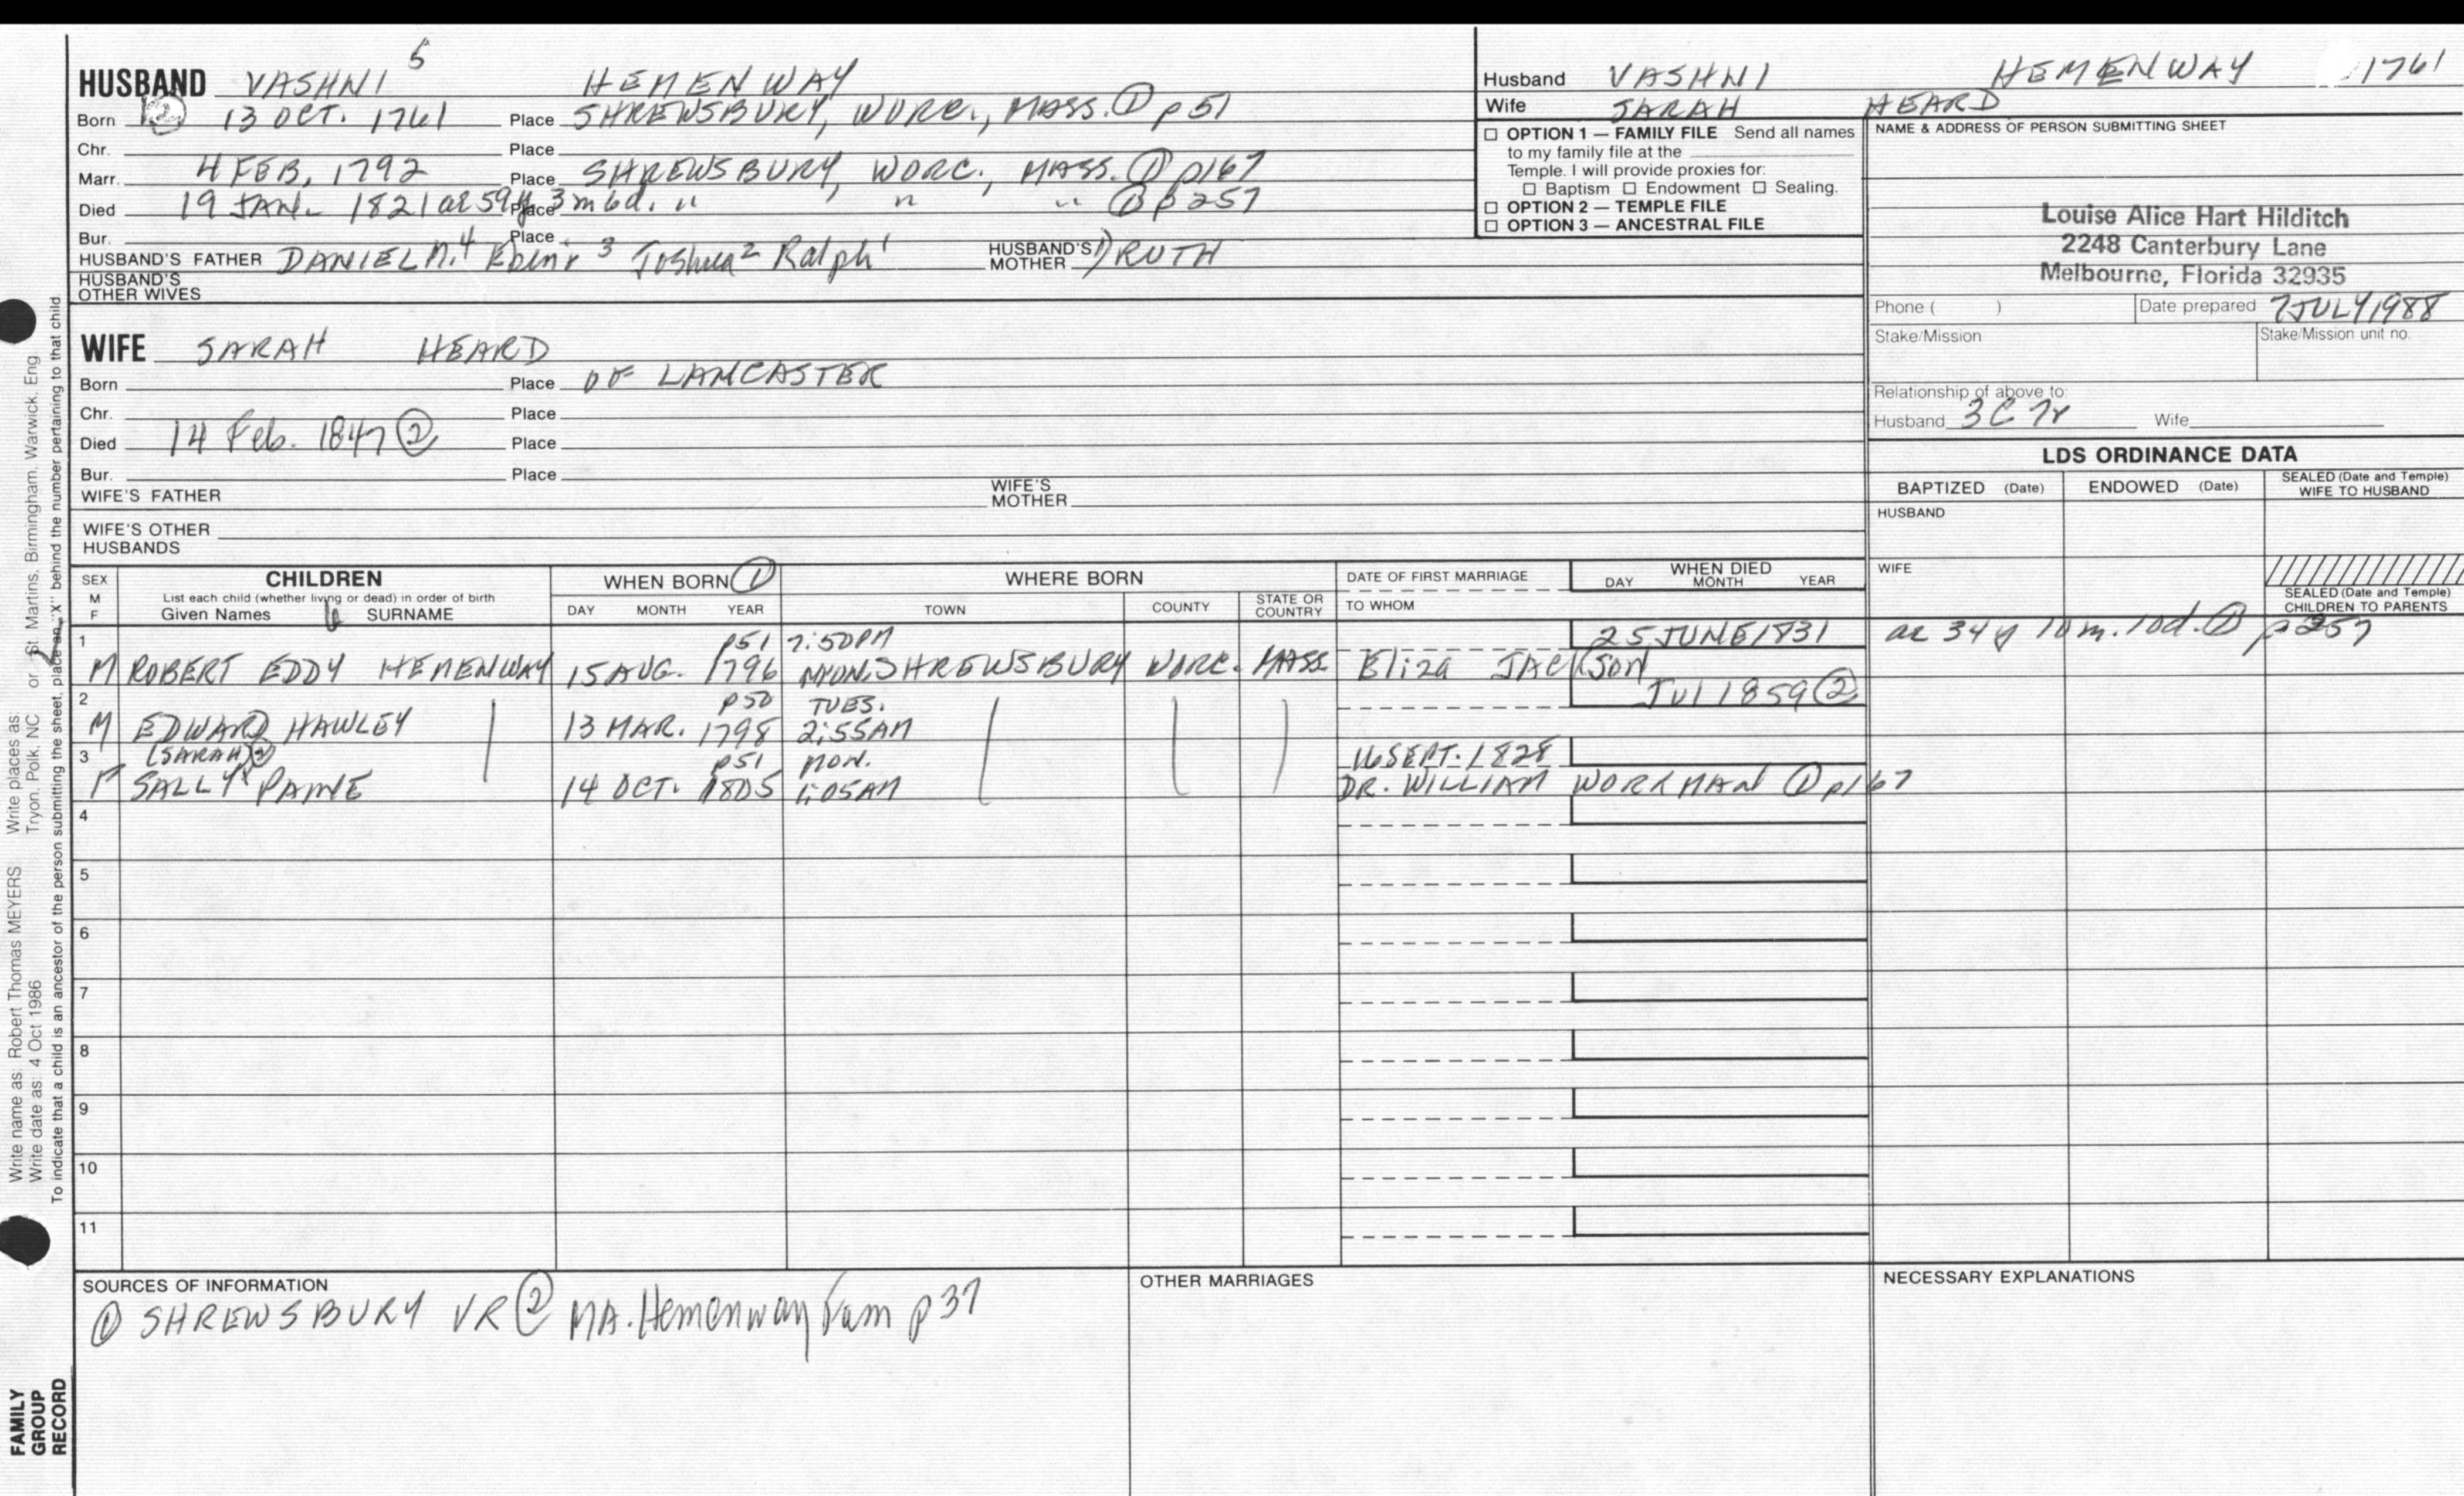 HUSBAND VASHNI 5 HEMENWAY
Born (2) 13 OCT. 1761 Place SHREWSBURY, WORC., MASS. ① p51
Chr. Place
Marr. 4 FEB, 1792 Place SHREWSBURY, WORC., MASS. ① p167
Died 19 JAN. 1821 ae 59y 3m 6d. Place " " " ① p257
Bur. Place
HUSBAND'S FATHER DANIEL 4 Ebenr 3 Joshua 2 Ralph 1 HUSBAND'S MOTHER RUTH
HUSBAND'S OTHER WIVES
Husband VASHNI HEMENWAY 1761
Wife SARAH HEARD
☐ OPTION 1 — FAMILY FILE Send all names
to my family file at the
Temple. I will provide proxies for:
☐ Baptism ☐ Endowment ☐ Sealing.
☐ OPTION 2 — TEMPLE FILE
☐ OPTION 3 — ANCESTRAL FILE
NAME & ADDRESS OF PERSON SUBMITTING SHEET
Louise Alice Hart Hilditch
2248 Canterbury Lane
Melbourne, Florida 32935
Phone ( ) Date prepared 7 JULY 1988
Stake/Mission Stake/Mission unit no.
Relationship of above to:
Husband 3C 7r Wife
WIFE SARAH HEARD
Born Place OF LANCASTER
Chr. Place
Died 14 Feb. 1847 ② Place
Bur. Place
WIFE'S FATHER WIFE'S MOTHER
WIFE'S OTHER HUSBANDS
LDS ORDINANCE DATA
BAPTIZED (Date) ENDOWED (Date) SEALED (Date and Temple) WIFE TO HUSBAND
HUSBAND
WIFE
SEALED (Date and Temple) CHILDREN TO PARENTS
SEX M F CHILDREN List each child (whether living or dead) in order of birth Given Names SURNAME
WHEN BORN ① DAY MONTH YEAR
WHERE BORN TOWN COUNTY STATE OR COUNTRY
DATE OF FIRST MARRIAGE TO WHOM
WHEN DIED DAY MONTH YEAR
1 p51 7:50PM 25 JUNE 1831 ae 34y 10m. 10d. ① p257
M ROBERT EDDY HEMENWAY 15 AUG. 1796 MON. SHREWSBURY WORC. MASS. Eliza JACKSON
2 p50 TUES. Jul 1859 ②
M EDWARD HAWLEY 13 MAR. 1798 2:55AM
3 (SARAH) ② p51 MON. 16 SEPT. 1828
F SALLY PAINE 14 OCT. 1805 1:05AM DR. WILLIAM WORKMAN ① p167
4
5
6
7
8
9
10
11
SOURCES OF INFORMATION
① SHREWSBURY VR ② MA. Hemenway Fam p37
OTHER MARRIAGES
NECESSARY EXPLANATIONS
Write name as: Robert Thomas MEYERS Write places as: Tryon, Polk, NC or St. Martins, Birmingham, Warwick, Eng
Write date as: 4 Oct 1986
To indicate that a child is an ancestor of the person submitting the sheet, place an "X" behind the number pertaining to that child.
FAMILY
GROUP
RECORD